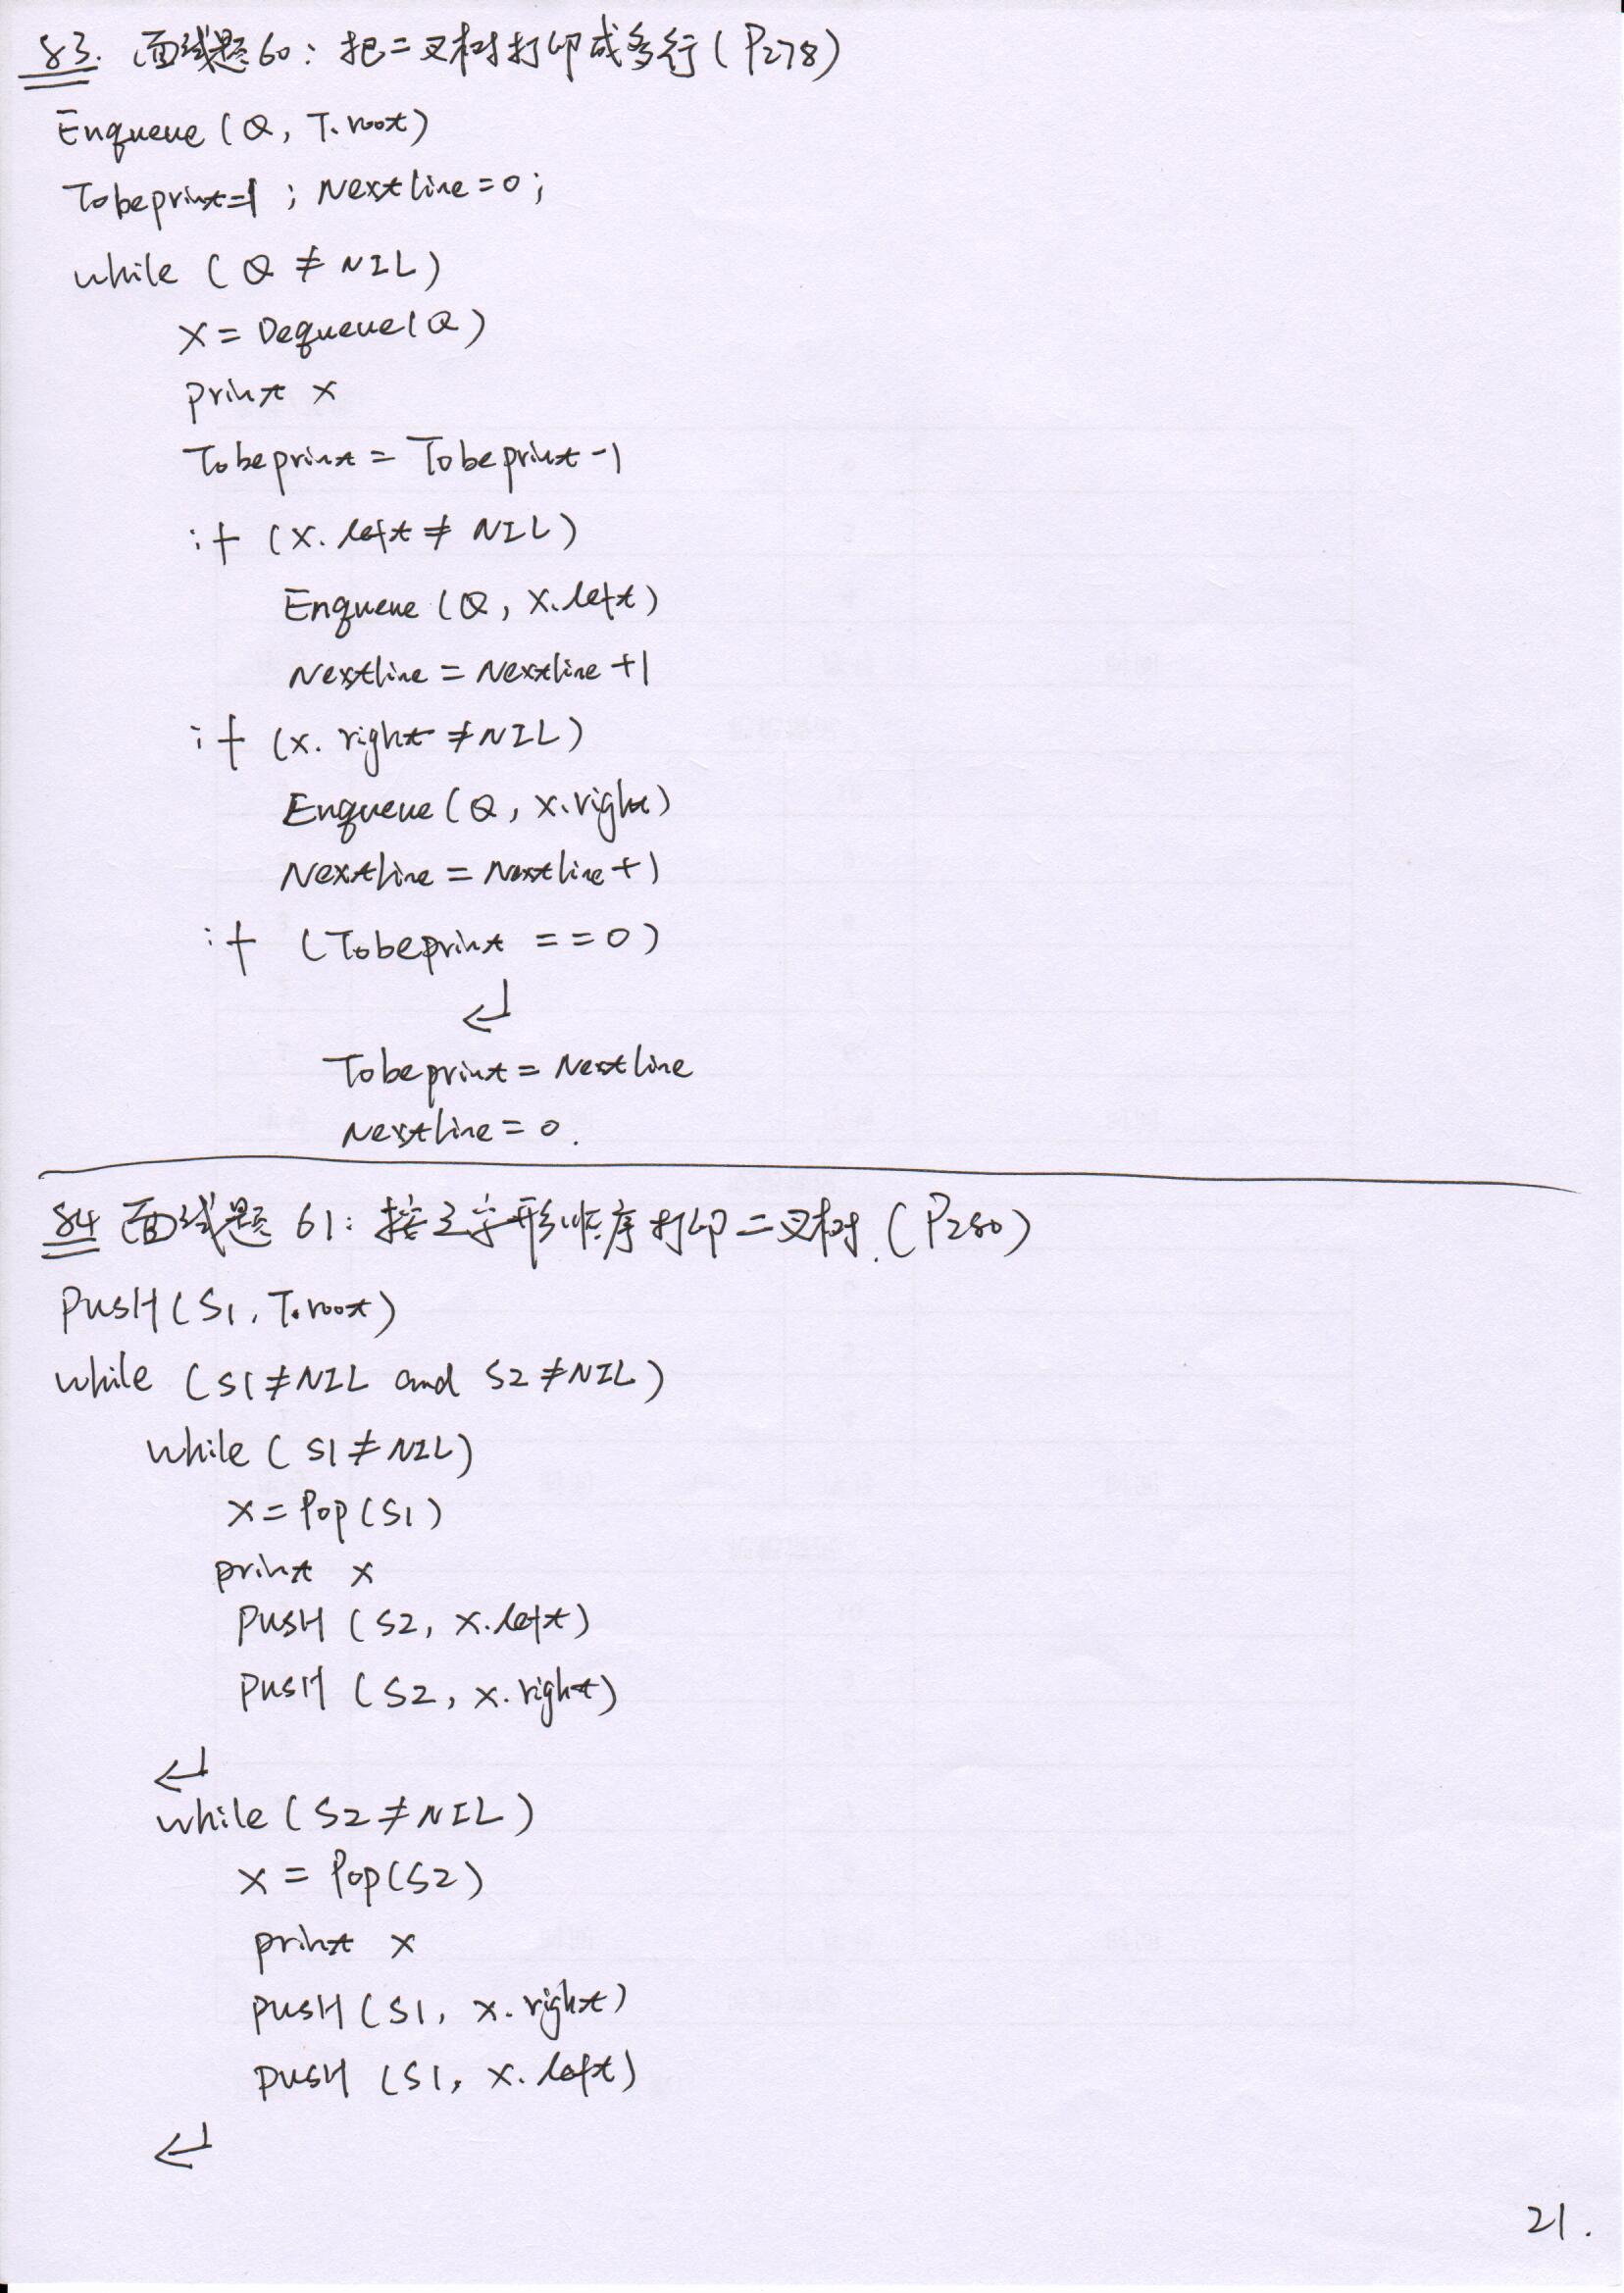 83. 面试题60: 把二叉树打印成多行(P278)
Enqueue(Q, T.root)
Tobeprint=1; Nextline=0;
while (Q ≠ NIL)
X = Dequeue(Q)
print x
Tobeprint = Tobeprint-1
if (x.left ≠ NIL)
Enqueue(Q, x.left)
Nextline = Nextline+1
if (x.right ≠ NIL)
Enqueue(Q, x.right)
Nextline = Nextline+1
if (Tobeprint ==0)
↵
Tobeprint = Nextline
Nextline = 0.
84 面试题 61: 按之字形顺序打印二叉树.(P280)
PUSH(S1, T.root)
while (S1≠NIL and S2≠NIL)
while (S1≠NIL)
X = Pop(S1)
print x
PUSH (S2, x.left)
PUSH (S2, x.right)
↵
while (S2≠NIL)
x = Pop(S2)
print x
PUSH(S1, x.right)
PUSH (S1, x.left)
↵
21.